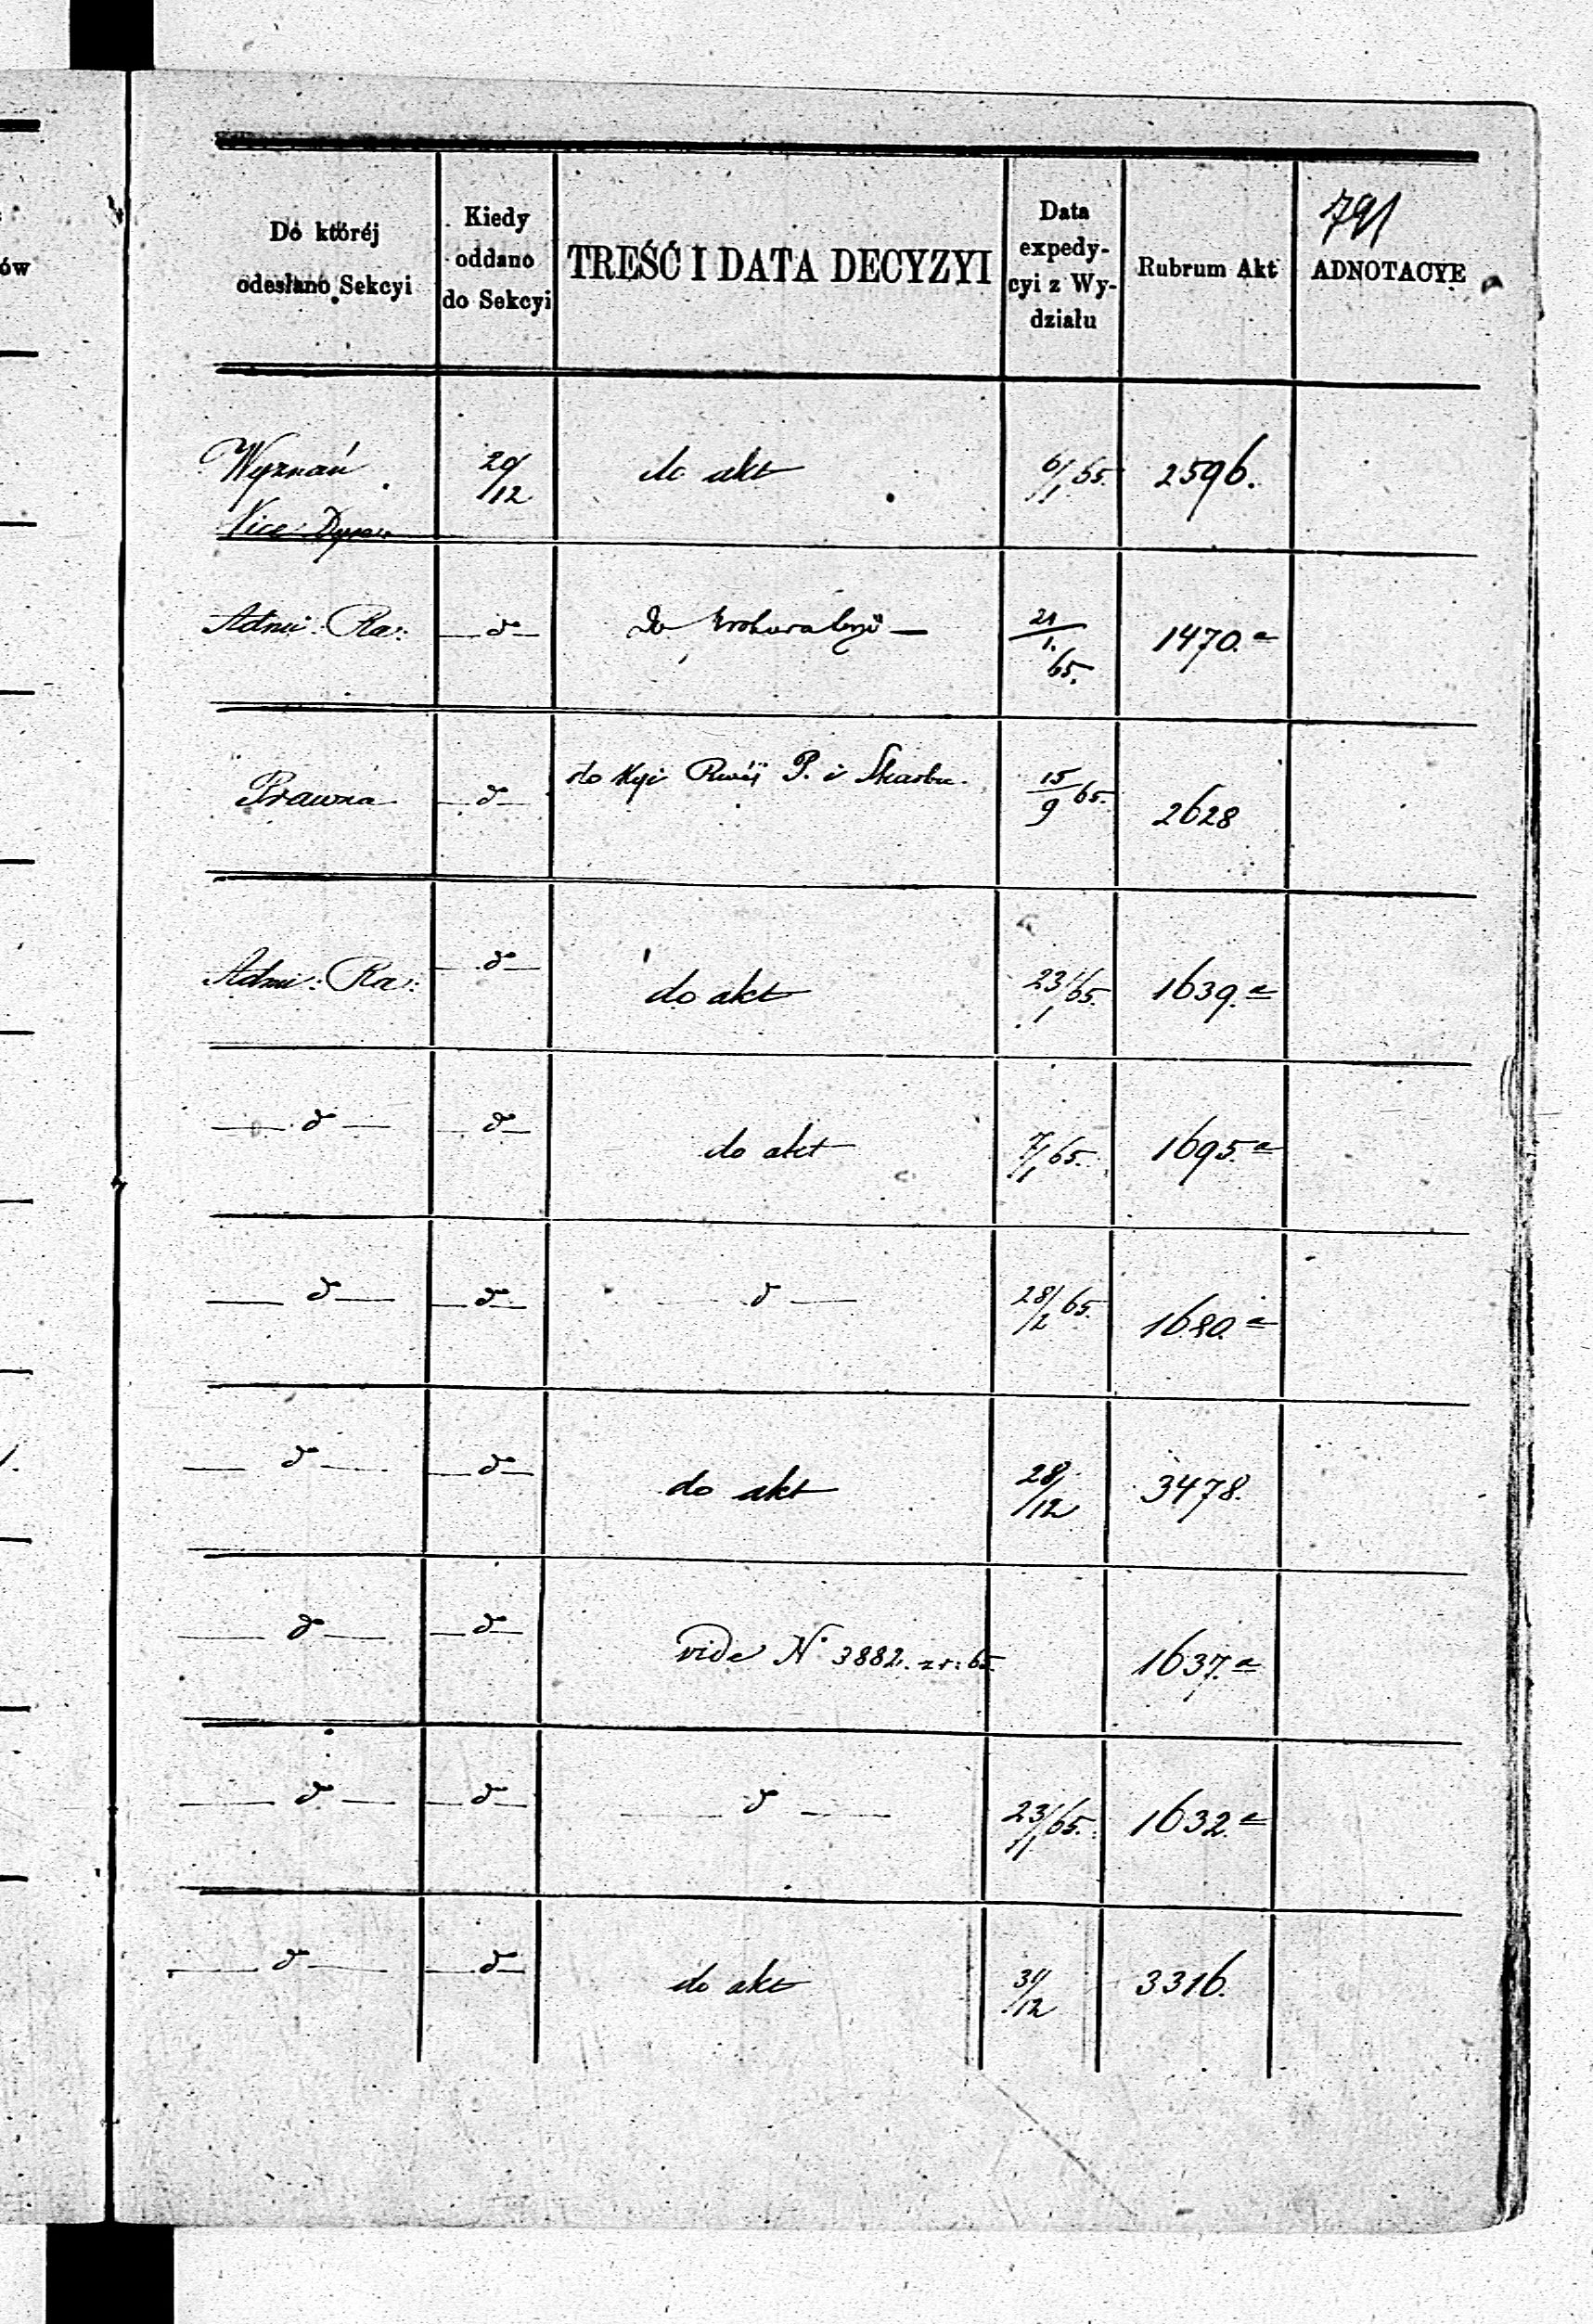 791
Do któréj
odesłano Sekcyi
Kiedy
oddano
do Sekcyi
TREŚĆ I DATA DECYZYI
Data
expedy-
cyi z Wy-
działu
Rubrum Akt
ADNOTACYE
ów
Wyznań 29/12 do akt 6/1 65. 2596.
Vice
Admi: Ra: do 21/1. 65. 1470.a
Prawna do do Kyi P. i Skarbu. 15/9 65. 2628
Admi: Ra: do do akt 23/1 65. 1639.a
do do do akt 7/1 65. 1695.a
do do do 28/2 65. 1680.a
do do do akt 28/12 3478.
do do vide No 3882. z r: 65. 1637.a
do do do 23/1 65. 1632.a
do do do akt 31/12 3316.